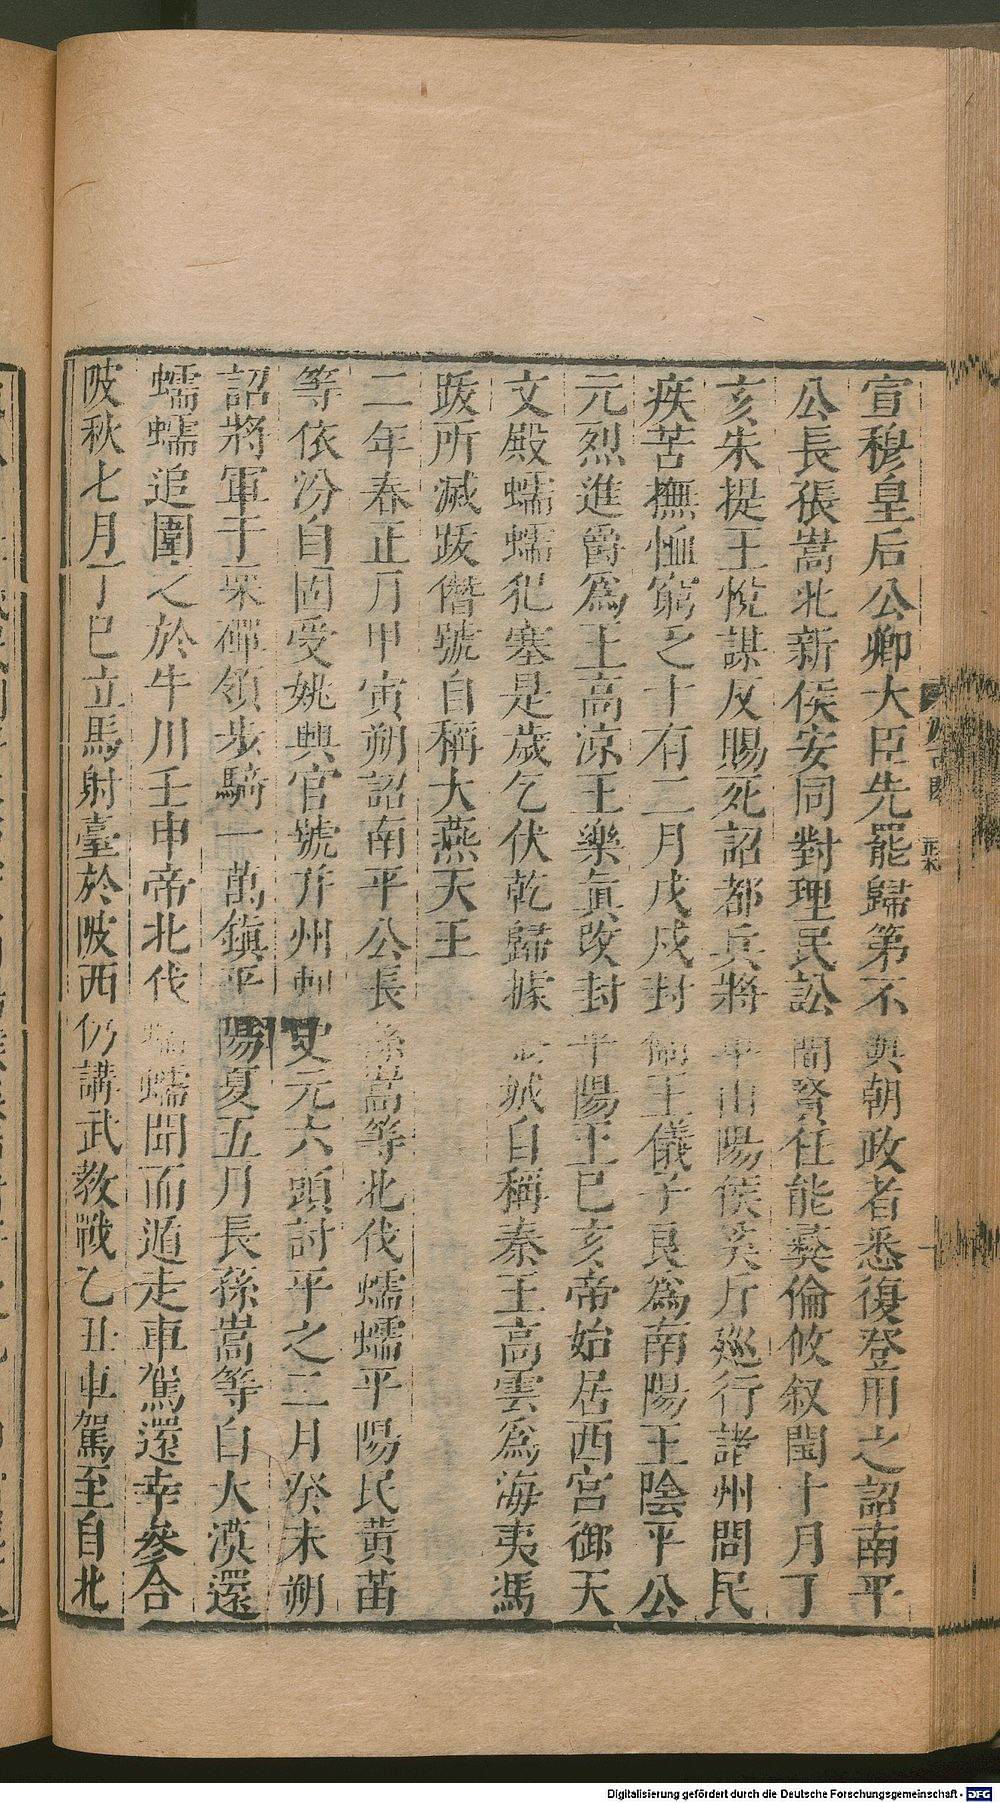 宣穆皇后公卿大臣先罷歸第不與朝政者悉復登用之詔南平
公長孫嵩北新侯安同對理民訟簡賢任能彜倫攸叙閏十月丁
亥朱提王悅謀反賜死詔都兵將軍山陽侯奚斤巡行諸州問民
疾苦撫恤窮乏十有二月戊戌封衞王儀子良爲南陽王陰平公
元烈進爵爲王高涼王樂眞改封平陽王已亥帝始居西宮御天
文殿蠕蠕犯塞是歲乞伏乾歸據城自稱秦王高雲爲海夷馮
跋所滅跋僭號自稱大燕天王
二年春正月甲寅朔詔南平公長孫嵩等北伐蠕蠕平陽民黃苗
等依汾自固受姚興官號并州刺史元六頭討平之二月癸未朔
詔將軍于栗磾領步騎一萬鎮平陽夏五月長孫嵩等自大漠還
蠕蠕追圍之於牛川壬申帝北伐蠕蠕聞而遁走車駕還幸參合
陂秋七月丁巳立馬射臺於陂西仍講武教戰乙丑車駕至自北
Digitalisierung gefördert durch die Deutsche Forschungsgemeinschaft - DFG